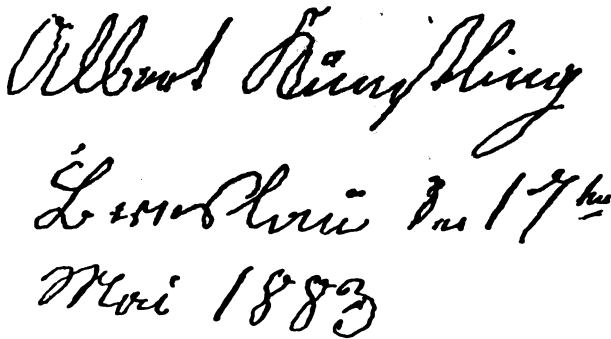 Albert Künstling
Breslau den 17ten
Mai 1883